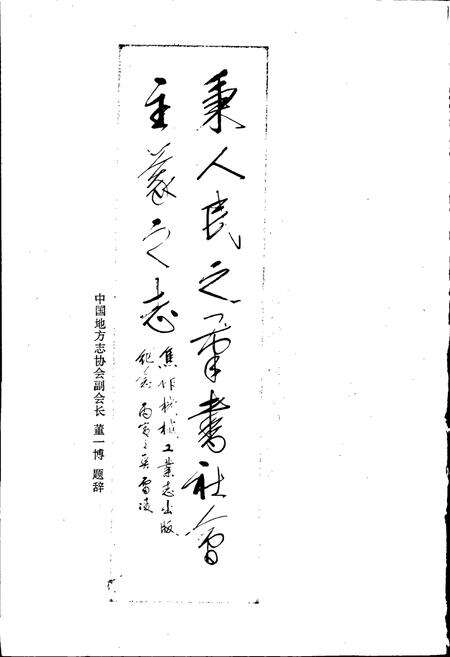 秉人民之笔書社会
主義之志
焦作机械工業志出版
紀念 丙寅之
中国地方志协会副会长 董一博 题辞